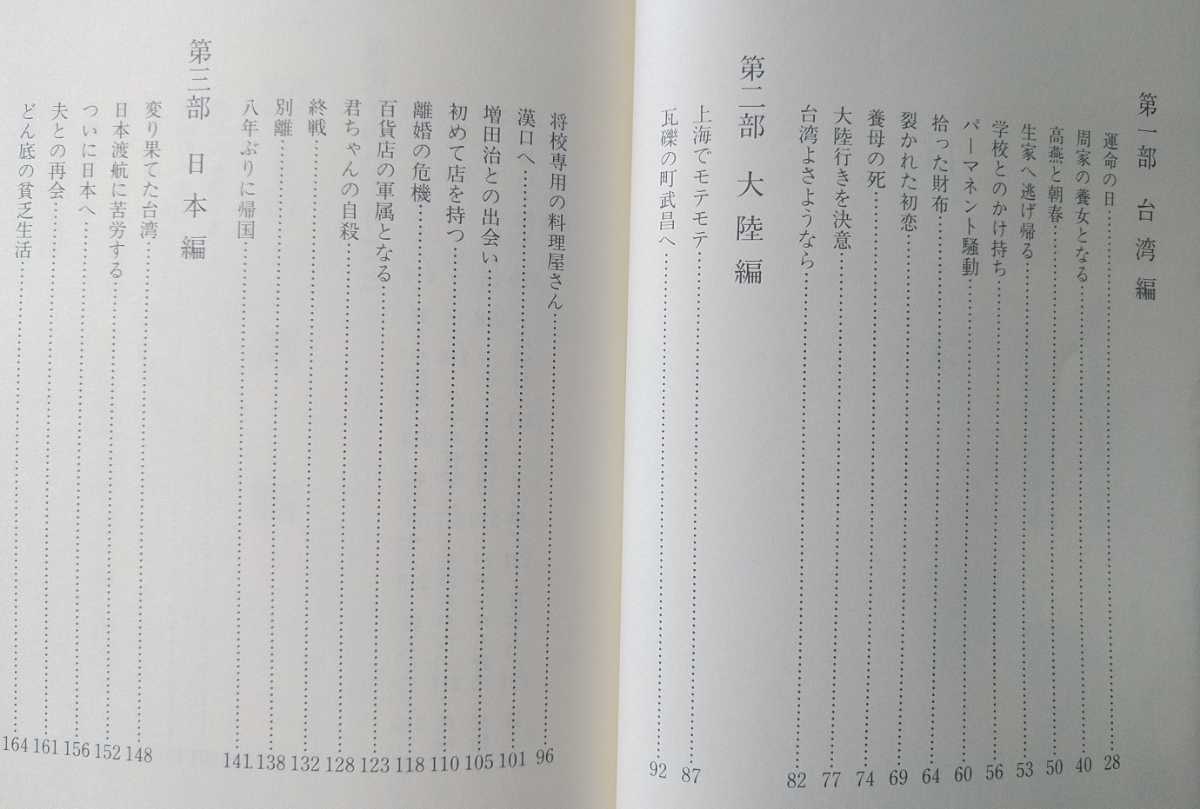 第一部 台湾編
運命の日……28
周家の養女となる……40
高燕と朝春……50
生家へ逃げ帰る……53
学校とのかけ持ち……56
パーマネント騒動……60
拾った財布……64
裂かれた初恋……69
養母の死……74
大陸行きを決意……77
台湾よさようなら……82
第二部 大陸編
上海でモテモテ……87
瓦礫の町武昌へ……92
将校専用の料理屋さん……96
漢口へ……101
増田治との出会い……105
初めて店を持つ……110
離婚の危機……118
百貨店の軍属となる……123
君ちゃんの自殺……128
終戦……132
別離……138
八年ぶりに帰国……141
第三部 日本編
変り果てた台湾……148
日本渡航に苦労する……152
ついに日本へ……156
夫との再会……161
どん底の貧乏生活……164